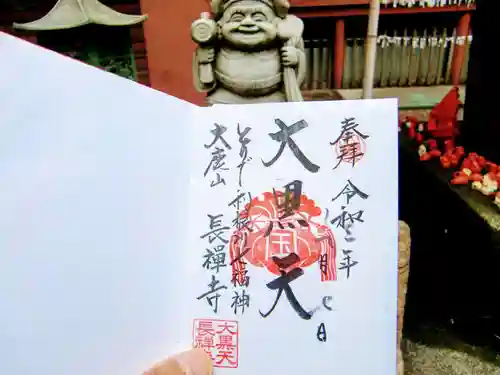 奉拝
令和二年
月七日
大黒天
とりで利根川七福神
大鹿山
長禅寺
大黒天
長禅寺